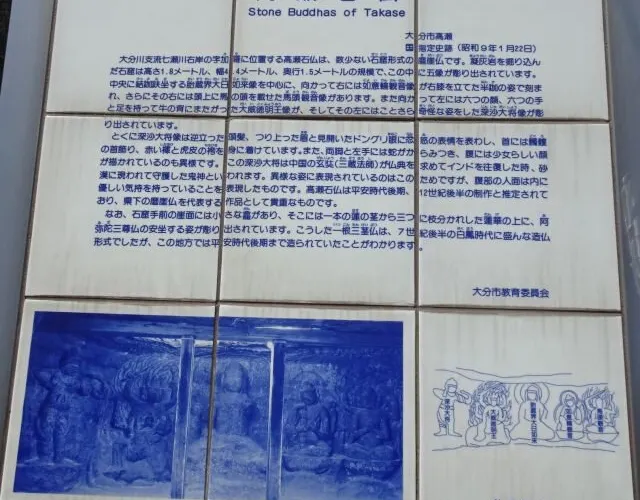 Stone Buddhas of Takase
大分市高瀬
国指定史跡（昭和9年1月22日）
大分川支流七瀬川右岸の字加に位置する高瀬石仏は、数少ない石窟形式の磨崖仏です。凝灰岩を掘り込ん
だ石窟は高さ1.8メートル、幅4.4メートル、奥行1.5メートルの規模で、この中に五像が彫り出されています。
中央に結跏趺坐する胎蔵界大日如来像を中心に、向かって右には如意輪観音像が右膝を立てた半跏の姿で刻ま
れ、さらにその右には頭上に馬の頭を載せた馬頭観音像があります。また向かって左には六つの顔、六つの手
と足を持って牛の背にまたがった大威徳明王像が、そしてその左にはことさら奇怪な姿をした深沙大将像が彫
り出されています。
とくに深沙大将像は逆立った頭髪、つり上った眉と見開いたドングリ眼に忿怒の表情を表わし、首には髑髏
の首飾り、赤い褌と虎皮の袴を身に着けています。また、両脚と左手には蛇がからみつき、腹には少女らしい顔
が描かれているのも異様です。この深沙大将は中国の玄奘（三蔵法師）が仏典を求めてインドを往復した時、砂
漠に現われて守護した鬼神といわれます。異様な姿に表現されているのはこのためですが、腹部の人面は内に
優しい気持を持っていることを表現したものです。高瀬石仏は平安時代後期、12世紀後半の制作と推定されて
おり、県下の磨崖仏を代表する作品として貴重なものです。
なお、石窟手前の崖面には小さな龕があり、そこには一本の蓮の茎から三つに枝分かれした蓮華の上に、阿
弥陀三尊仏の安坐する姿が彫り出されています。こうした一根三茎仏は、7世紀後半の白鳳時代に盛んな造仏
形式でしたが、この地方では平安時代後期まで造られていたことがわかります。
大分市教育委員会
深沙大将
大威徳明王
胎蔵界大日如来
如意輪観音
馬頭観音